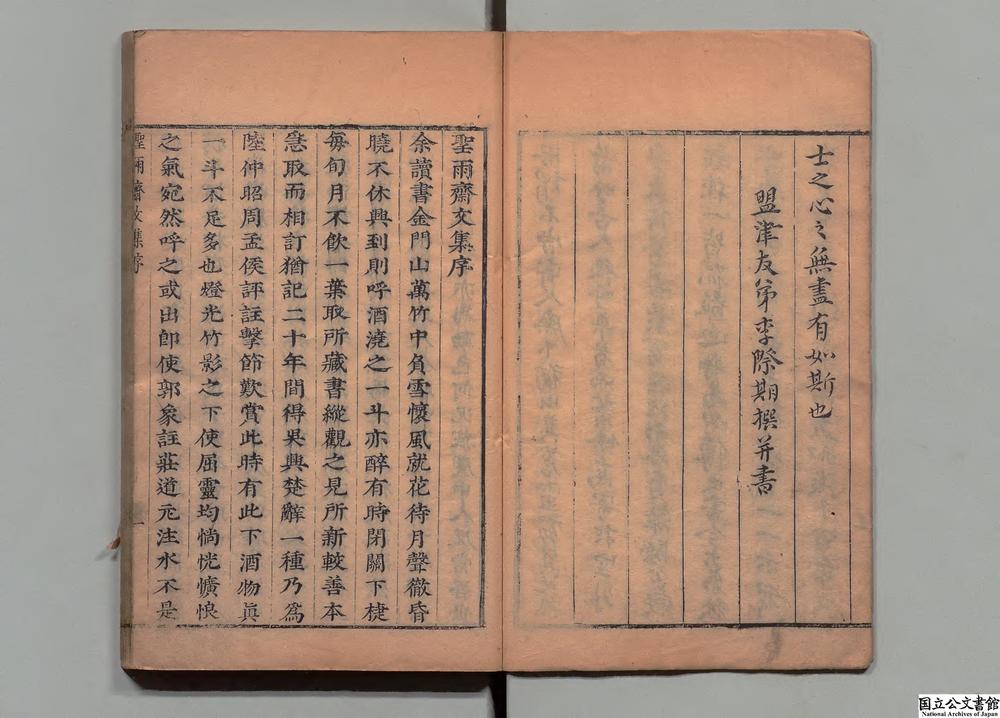 士之心之無盡有如斯也
盟津友弟李際期撰并書
聖雨齋文集序
余讀書金門山萬竹中負雪懷風就花待月聲徹昏
曉不休興到則呼酒澆之一斗亦醉有時閉關下楗
每旬月不飲一葉取所藏書縱觀之見所新較善本
急取而相訂猶記二十年間得吳興楚辭一種乃為
陸仲昭周孟侯評註擊節歎賞此時有此下酒物眞
一斗不足多也燈光竹影之下使屈靈均惝恍懭悢
之氣宛然呼之或出卽使郭象註莊道元注水不是
聖雨齋文集序
一
国立公文書館
National Archives of Japan